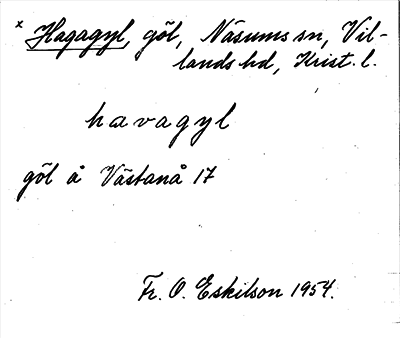 x Hagagyl, göl, Näsums sn, Vil-
lands hd, Krist. l.
havagyl
göl å Västanå 17
Fr. O. Eskilson 1954.